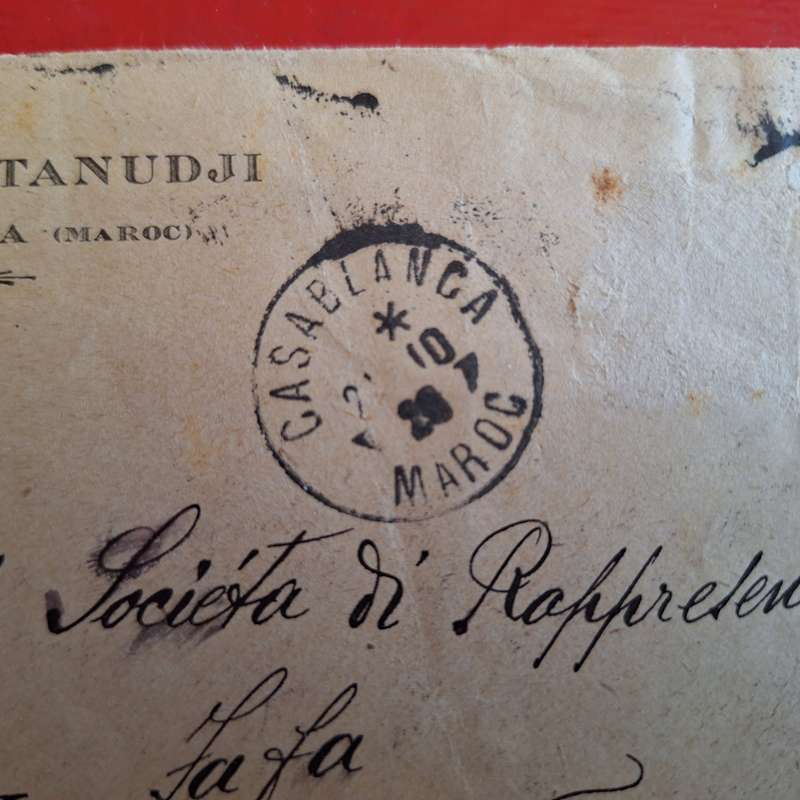 TANUDJI
A (MAROC)
CASABLANCA
*
10
2
MAROC
Società di Rappresen
Jafa